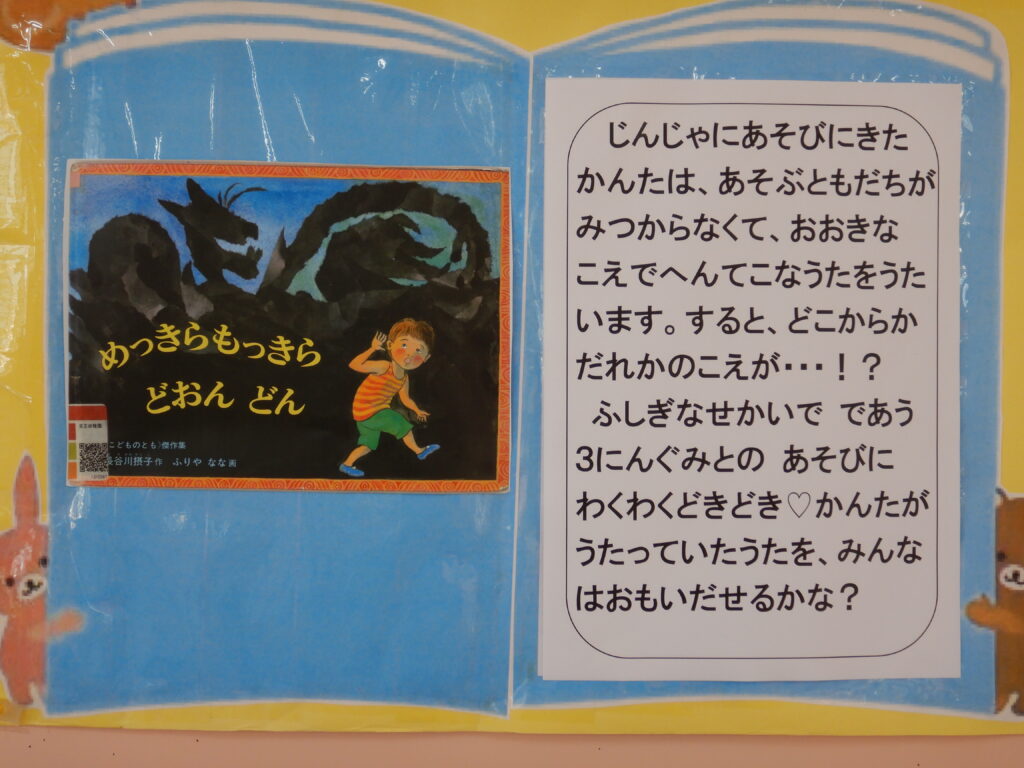 めっきらもっきら
どおん どん
こどものとも〉傑作集
長谷川摂子作 ふりや なな画
じんじゃにあそびにきた
かんたは、あそぶともだちが
みつからなくて、おおきな
こえでへんてこなうたをうた
います。すると、どこからか
だれかのこえが・・・！？
ふしぎなせかいで であう
3にんぐみとの あそびに
わくわくどきどき♡かんたが
うたっていたうたを、みんな
はおもいだせるかな？